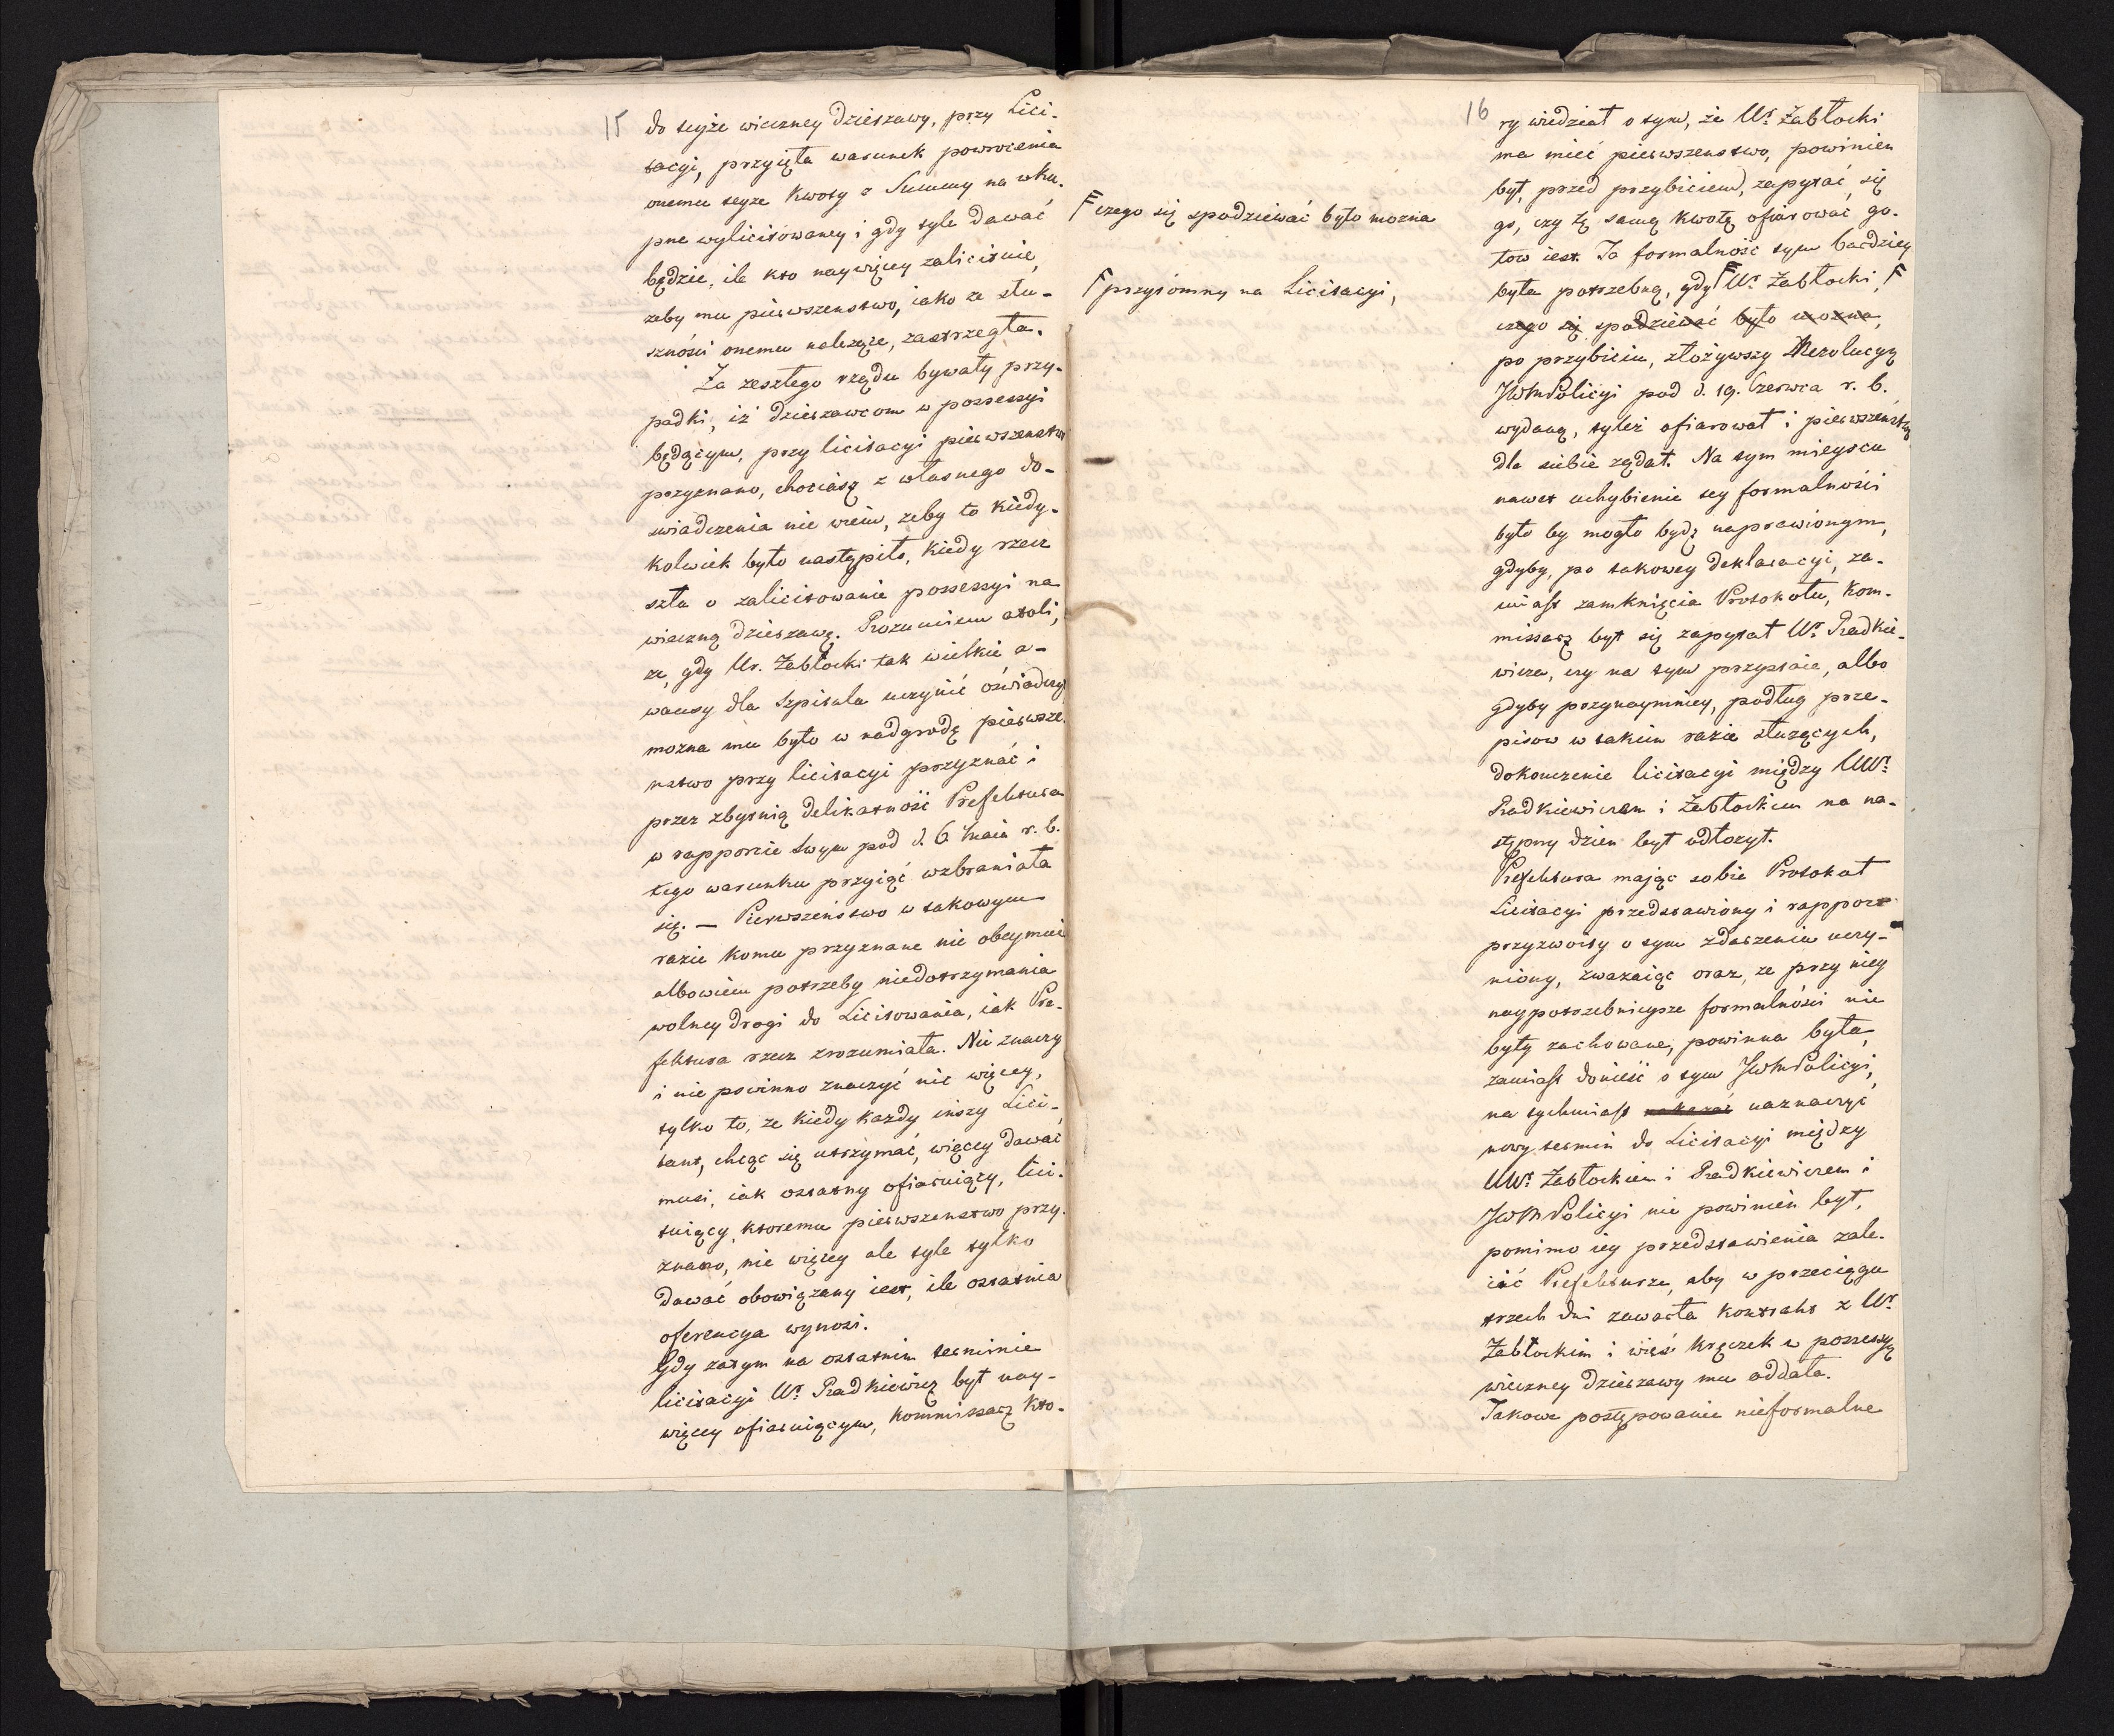 15
do teyże wieczney dzierżawy, przy Lici-
tacyi, przyięta warunek powrocenia
onemu teyże kwoty z Summy na wku-
pne wylicitowaney i gdy tyle dawać
będzie, ile kto naywięcey zalicituie,
żeby mu pierwszenstwo, iako ze słu-
szności onemu należące, zastrzegła.
Za zeszłego rządu bywały przy-
padki, iż dzierzawcom w possessyi
będącym, przy licitacyi pierwszenstwo
przyznano, chociasz z własnego do-
swiadczenia nie wiem, żeby to kiedy-
kolwiek było nastąpiło, kiedy rzecz
szła o zalicitowanie possessyi na
wieczną dzierzawę. Rozumiem atoli,
że, gdy Ur. Zabłocki tak wielkie a-
wansy dla Szpitala uczynić oświadczył
można mu było w nadgrodę pierwsze-
nstwo przy licitacyi przyznać i
przez zbytnią delikatność Prefektura
w rapporcie swym pod d. 6 Maia r. b.
tego warunku przyiąć wzbraniała
się. — Pierwszeństwo w takowym
razie komu przyznane nie obeymuie
albowiem potrzeby niedotrzymania
wolney drogi do Licitowania, iak Pre-
fektura rzecz zrozumiała. Nie znaczy
i nie powinno znaczyć nic więcey,
tylko to, że kiedy każdy inszy Lici-
tant, chcąc się utrzymać, więcey dawać
musi, iak ostatny ofiaruiący, lici-
tuiący, ktoremu pierwszenstwo przy-
znano, nie więcey ale tyle tylko
dawać obowiązany iest, ile ostatnia
oferencya wynosi.
Gdy zatym na ostatnim terminie
licitacyi Ur. Radkiewicz był nay-
więcey ofiaruiącym, Kommissarz kto-
czego się spodziewać było można
przytomny na Licitacyi,
16
ry wiedział o tym, że Ur. Zabłocki
ma mieć pierwszenstwo, powinien
był, przed przybiciem, zapytać się
go, czy tę samą kwotę ofiarować go-
tow iest. Ta formalność tym bardziey
była potrzebną, gdy Ur. Zabłocki,
czego się spodziewać było można,
po przybiciu, złożywszy Rezolucyą
JWMPolicyi pod d. 19. Czerwca r. b.
wydaną, tyleż ofiarował i pierwszenstwa
dla siebie żądał. Na tym mieyscu
nawet uchybienie tey formalności
było by mogło bydz naprawionym,
gdyby, po takowey deklaracyi, za-
miast zamknięcia Protokołu, Kom-
missarz był się zapytał Ur. Radkie-
wicza, czy na tym przystaie, albo
gdyby przynaymniey, podług prze-
pisow w takim razie służących,
dokonczenie licitacyi między UUr.
Radkiewiczem i Zabłockim na na-
stępny dzien był odłożył.
Prefektura mając sobie Protokoł
Licitacyi przedstawiony i rapport
przyzwoity o tym zdarzeniu uczy-
niony, zważaiąc oraz, że przy niey
naypotrzebnieysze formalności nie
były zachowane, powinna była,
zamiast donieść o tym JWMPolicyi,
na tychmiast nakazać naznaczyć
nowy termin do Licitacyi między
UUr. Zabłockim i Radkiewiczem i
JWMPolicyi nie powinien był,
pomimo iey przedstawienia zale-
cić Prefekturze, aby w przeciągu
trzech dni zawarła kontrakt z Ur.
Zabłockim i wieś Krączek w possessyą
wieczney dzierzawy mu oddała.
Takowe postępowanie nieformalne